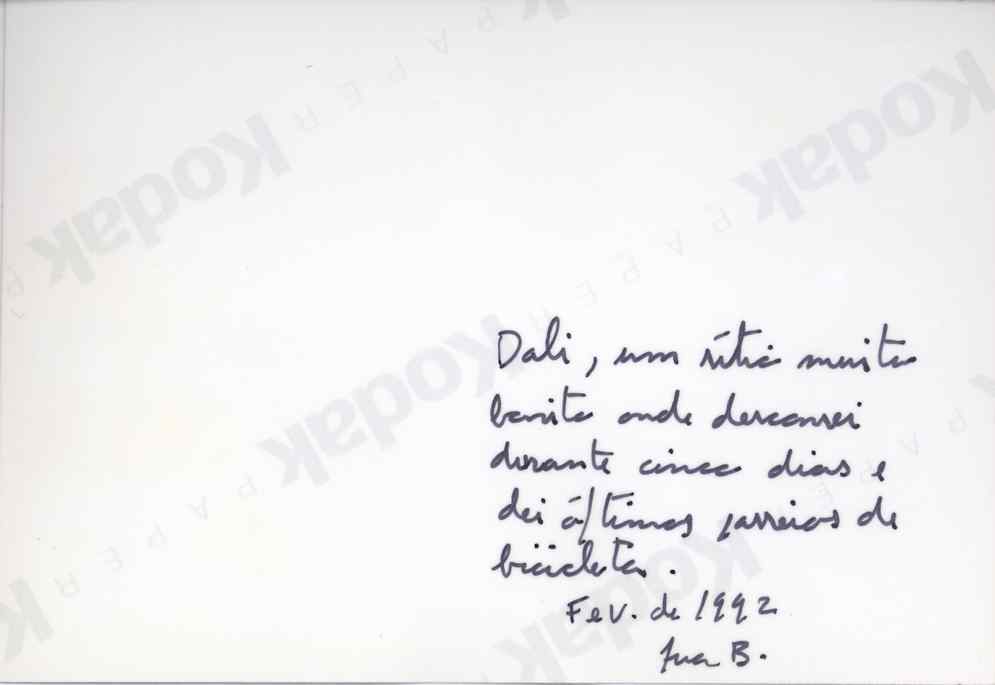 Kodak
PAPER
Kodak
PAPER
Kodak
PAPER
Kodak
PAPER
Kodak
Dali, um sítio muito
bonito onde descansei
durante cinco dias e
dei óptimos passeios de
bicicleta.
Fev. de 1992
B.